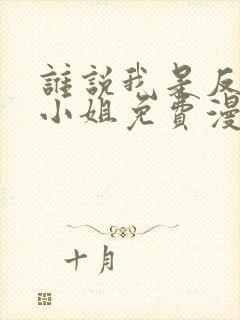 誰說我是反
小姐免費漫
十月